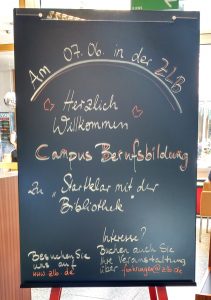 Am 07.06. in der ZLB
Herzlich
Willkommen
Campus Berufsbildung
Zu „Startklar mit der
Bibliothek"
Besuchen Sie
uns auf
www.zlb.de
Interesse?
Buchen auch Sie
Ihre Veranstaltung
über fuehrungen@zlb.de